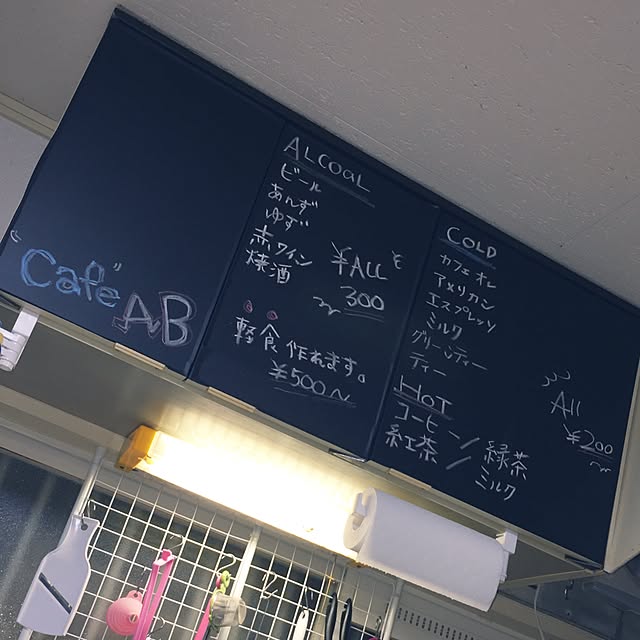 "Café"
AB
ALCOaL
ビール
あんず
ゆず
赤ワイン
焼酒
¥ALL
300
軽食作れます。
¥500〜
COLD
カフェオレ
アメリカン
エスプレッソ
ミルク
グリーンティー
ティー
All
¥200
HOT
コーヒー／緑茶
紅茶／ミルク